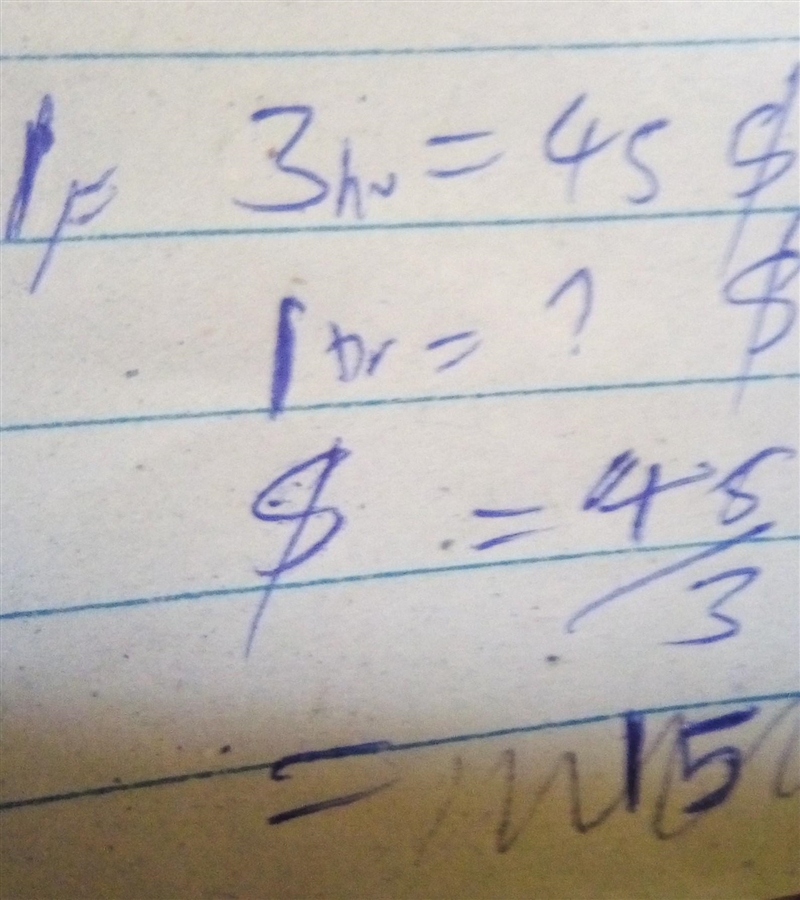 IF 3hr = 45 $
1 hr = ? $
$ = 45/3
= 15